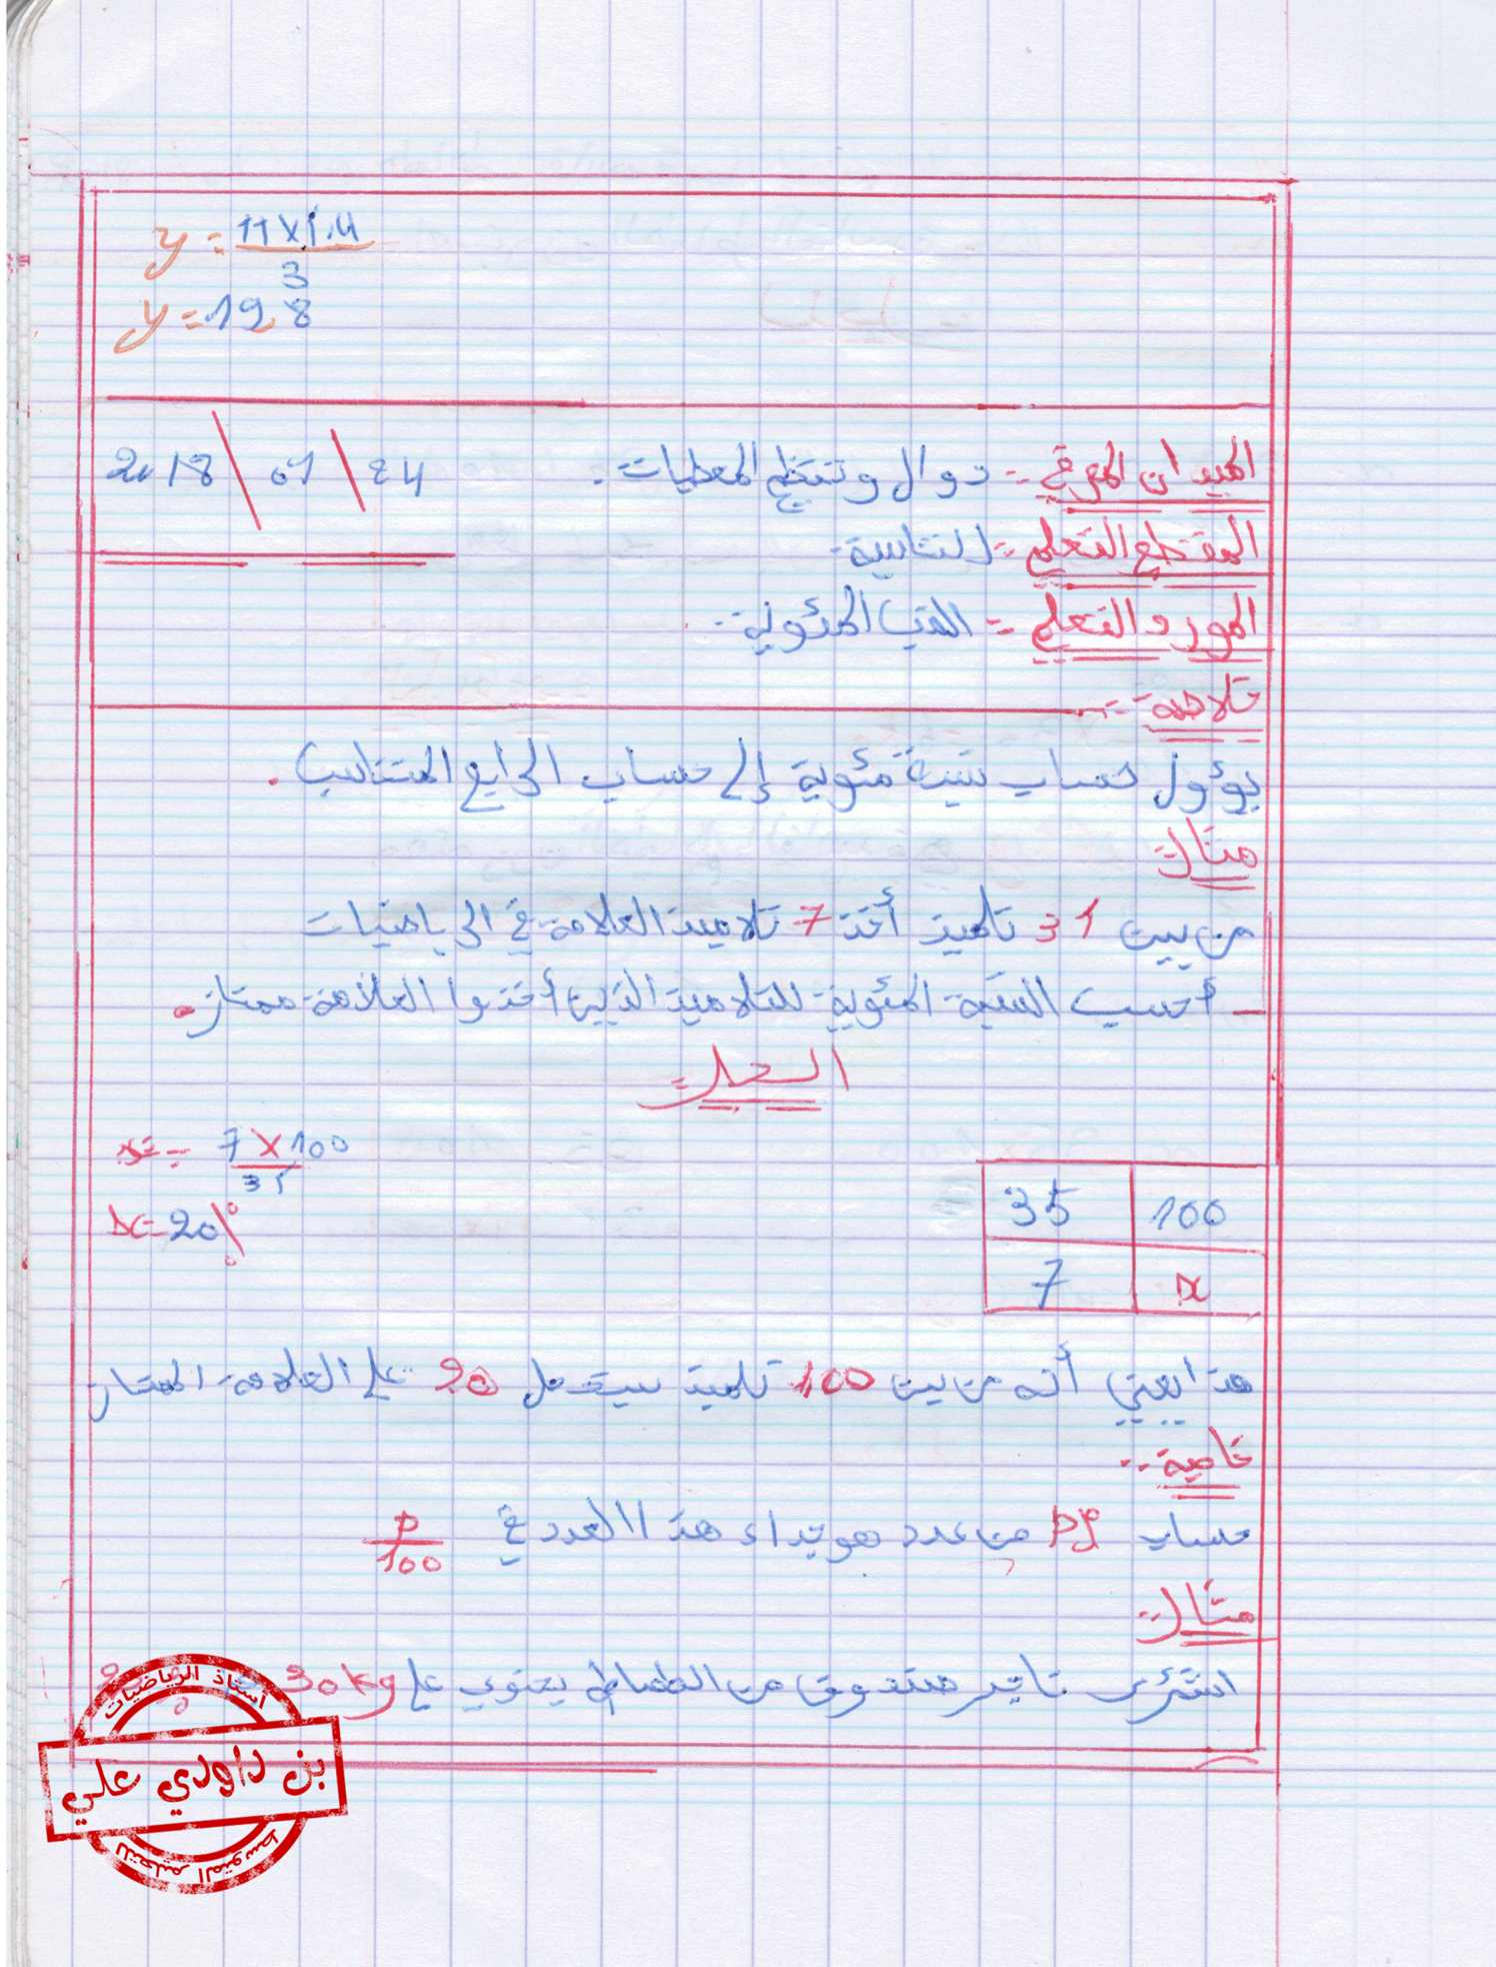 y = 11 × 1.4 / 3
y = 19,8
الميدان المعرفي :- دوال وتنظيم المعطيات . 24 / 01 / 2018
المقطع التعلمي :- التناسبية
المورد التعلمي :- النسب المئوية
خلاصة :-
يؤول حساب نسبة مئوية إلى حساب الرابع المتناسب .
مثال :
من بين 31 تلميذ أخذ 7 تلاميذ العلامة في الرياضيات
- أحسب النسبة المئوية للتلاميذ الذين أخذوا العلامة ممتاز .
الحل :
x = 7 × 100 / 35
x = 20%
35 100
7 x
هذا يعني أنه من بين 100 تلميذ سيتحصل 20 على العلامة الممتاز
خاصية :-
حساب p% من عدد هو جداء هذا العدد في p/100
مثال :
اشترى تاجر صندوق من الطماطم يحتوي على 30kg
أستاذ الرياضيات
بن داودي علي
للتعليم المتوسط